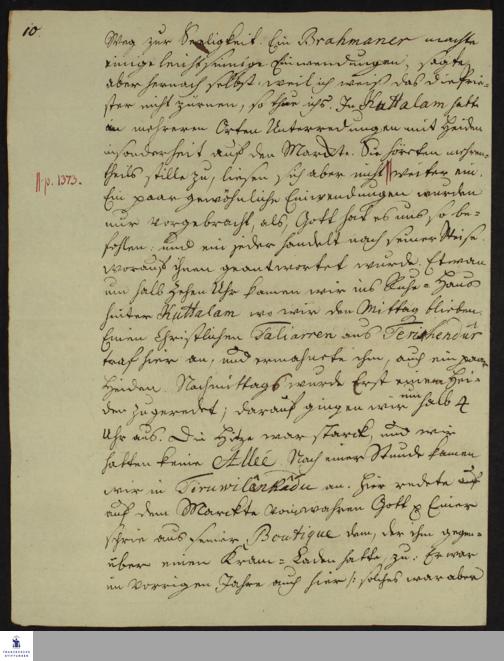 10
Weg zur Seeligkeit. Ein Brahmaner machte
einige leichtsinnige Einwendungen, sagte
aber hernach selbst: weil ich weiß das die Prie-
ster nicht zürnen, so thue ichs. In Kuttalam hatte
in mehreren Orten Unterredungen mit Heiden
insonderheit auf den Marckte. Sie hörten meisten-
theils stille zu, liesen sich aber nicht weiter ein.
p. 1373.
Ein paar gewöhnliche Einwendungen wurden
nur vorgebracht, als, Gott hat es uns so be-
fohlen: und ein jeder handelt nach seiner Weise.
worauf ihnen geantwortet wurde. Etwan
um halb zehen Uhr kamen wir ins Ruhe-Haus
hinter Kuttalam wo wir den Mittag blieben.
Einen Christlichen Taliarren aus
traf hier an, und ermahnete ihn, auch ein paar
Heiden. Nachmittags wurde Erst einem Hei-
den zugeredet; darauf gingen wir um halb 4
Uhr aus. Die Hitze war starck, und wir
hatten keine Allée. Nach einer Stunde kamen
wir in Tiruwilankâdu an. Hier redete
auf dem Marckte vom wahren Gott Einer
schrie aus seiner Boutique dem, der ihm gegen-
über einen Kram-Laden hatte, zu: Er war
im vorrigen Jahre auch hier /: solches war aber
FRANCKESCHE
STIFTUNGEN